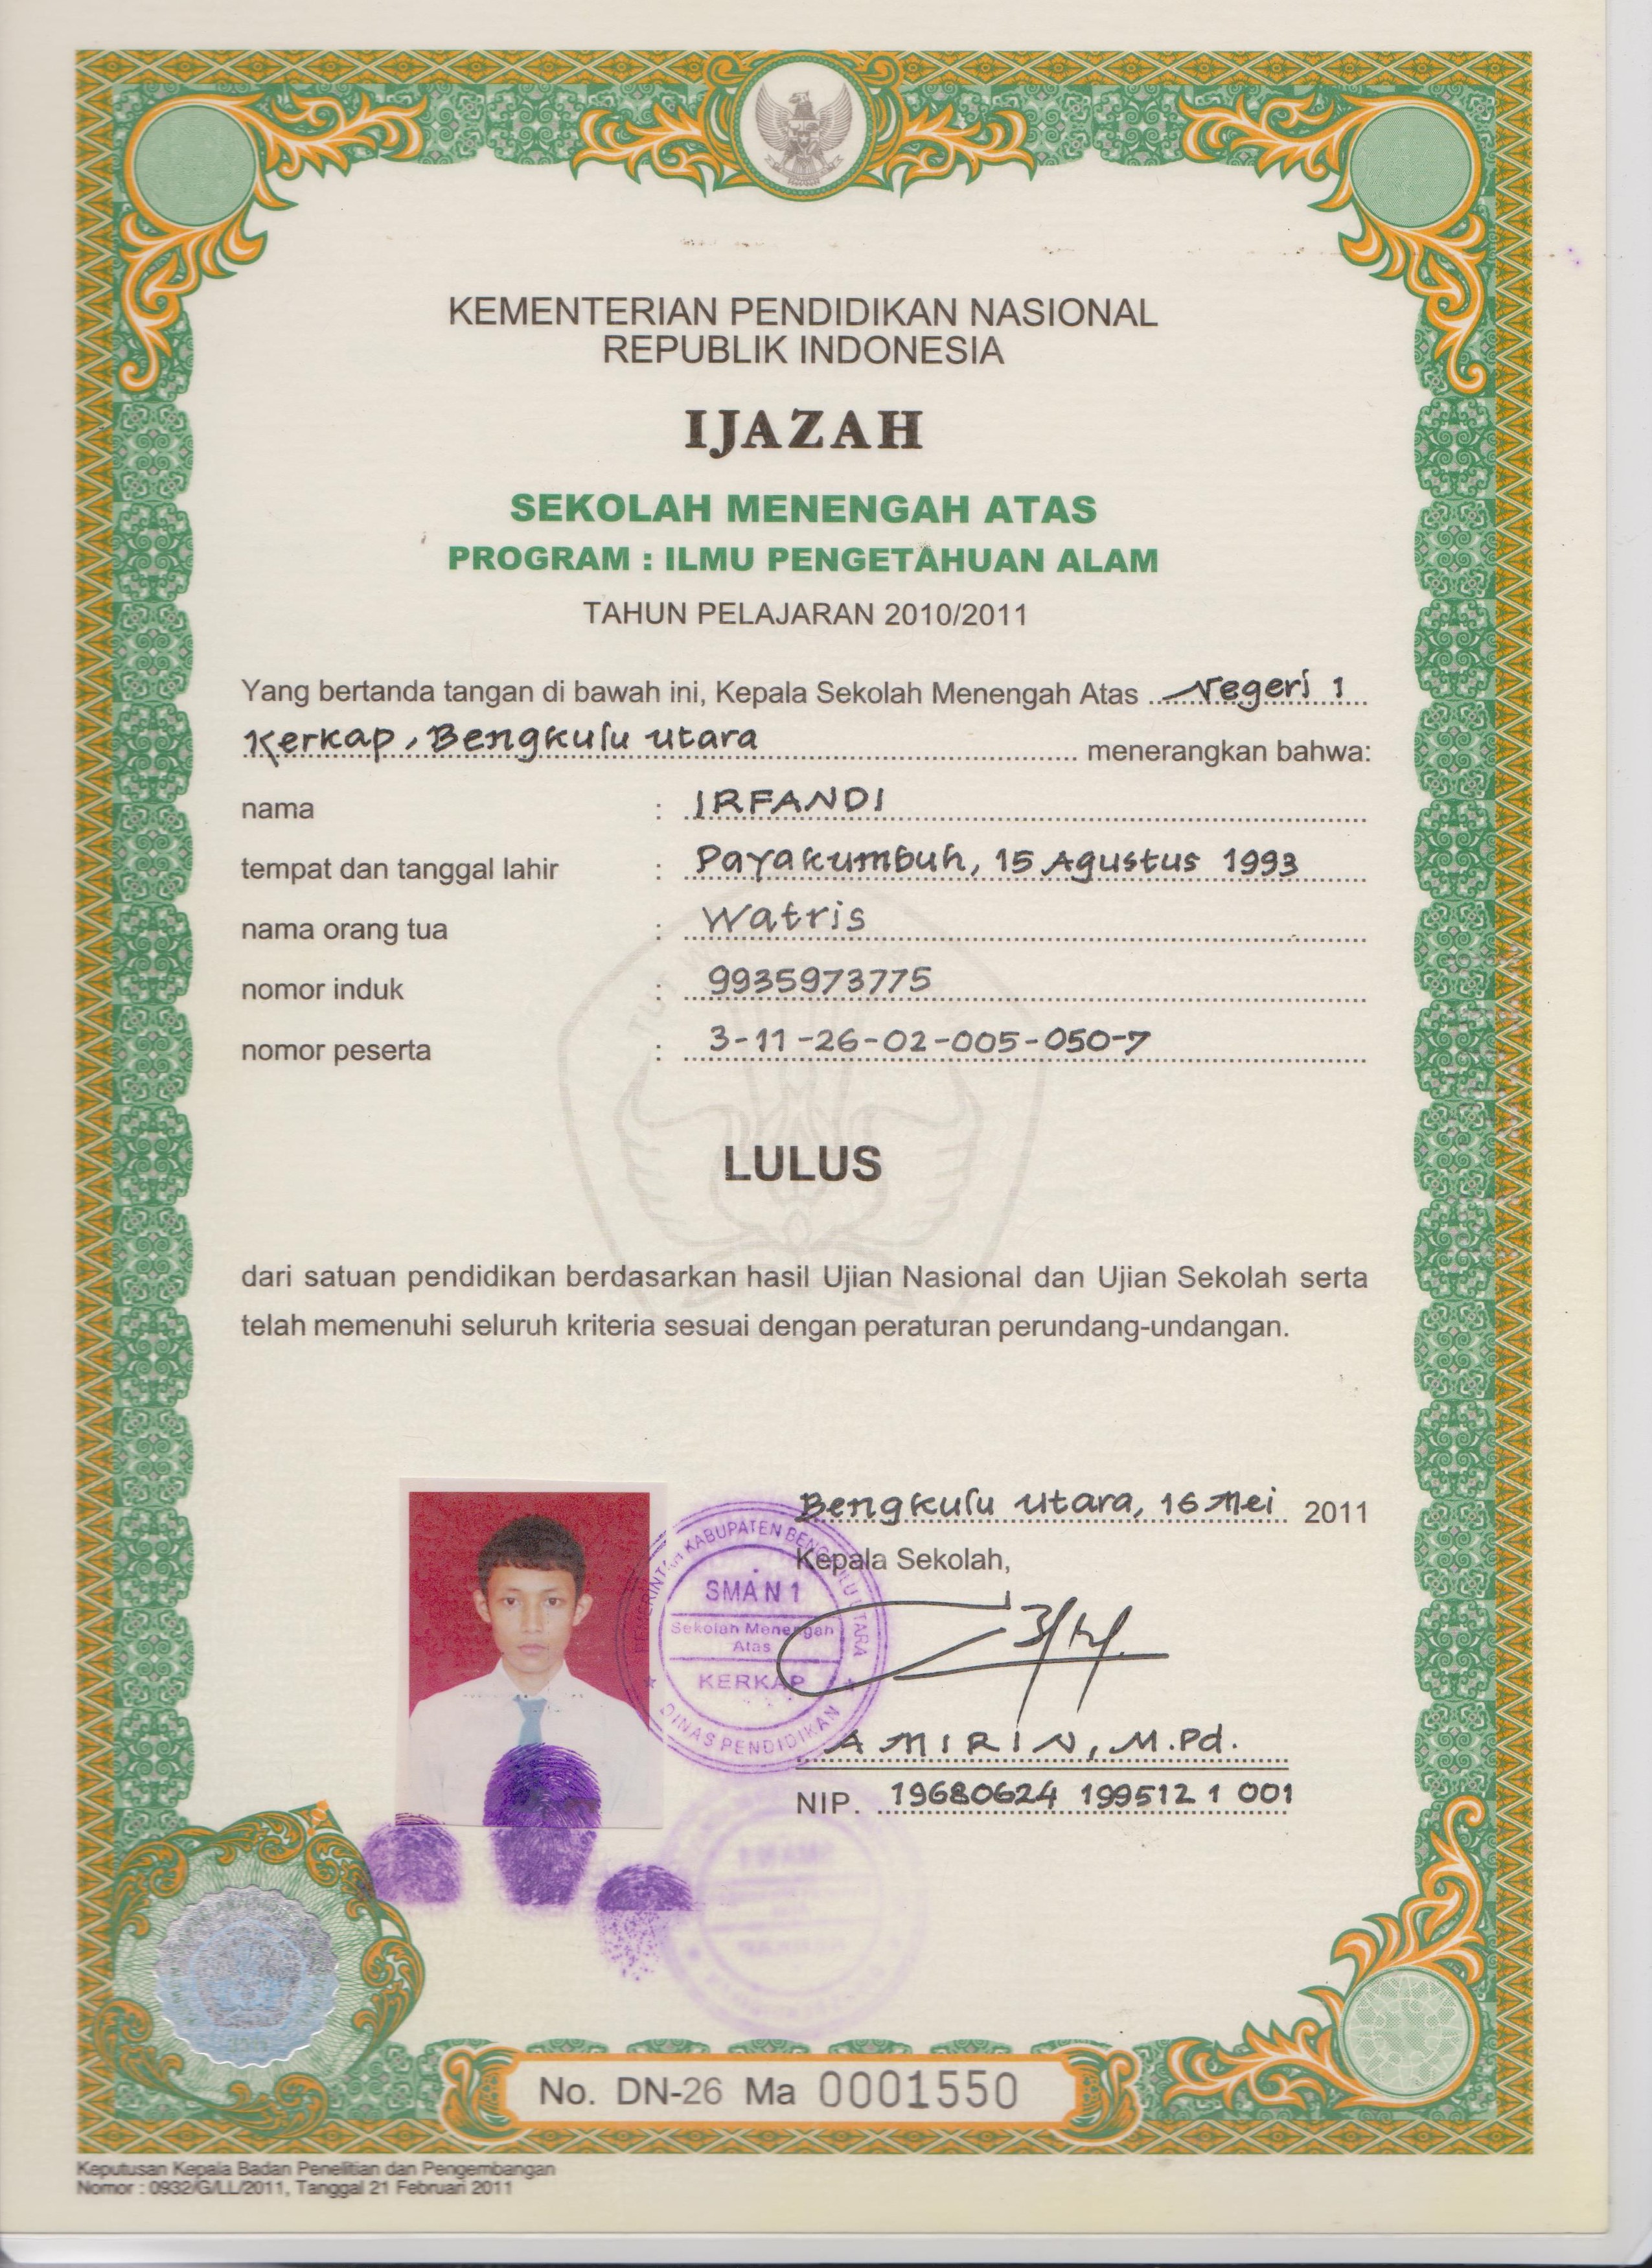 KEMENTERIAN PENDIDIKAN NASIONAL
REPUBLIK INDONESIA
IJAZAH
SEKOLAH MENENGAH ATAS
PROGRAM : ILMU PENGETAHUAN ALAM
TAHUN PELAJARAN 2010/2011
Yang bertanda tangan di bawah ini, Kepala Sekolah Menengah Atas Negeri 1
Kerkap, Bengkulu Utara menerangkan bahwa:
nama : IRFANDI
tempat dan tanggal lahir : Payakumbuh, 15 Agustus 1993
nama orang tua : Watris
nomor induk : 9935973775
nomor peserta : 3-11-26-02-005-050-7
LULUS
dari satuan pendidikan berdasarkan hasil Ujian Nasional dan Ujian Sekolah serta
telah memenuhi seluruh kriteria sesuai dengan peraturan perundang-undangan.
Bengkulu Utara, 16 Mei 2011
Kepala Sekolah,
PEMERINTAH KABUPATEN BENGKULU UTARA
SMAN 1
Sekolah Menengah
Atas
KERKAP
DINAS PENDIDIKAN
AMIRIN, M.Pd.
NIP. 19680624 199512 1 001
No. DN-26 Ma 0001550
Keputusan Kepala Badan Penelitian dan Pengembangan
Nomor : 0932/G/LL/2011, Tanggal 21 Februari 2011